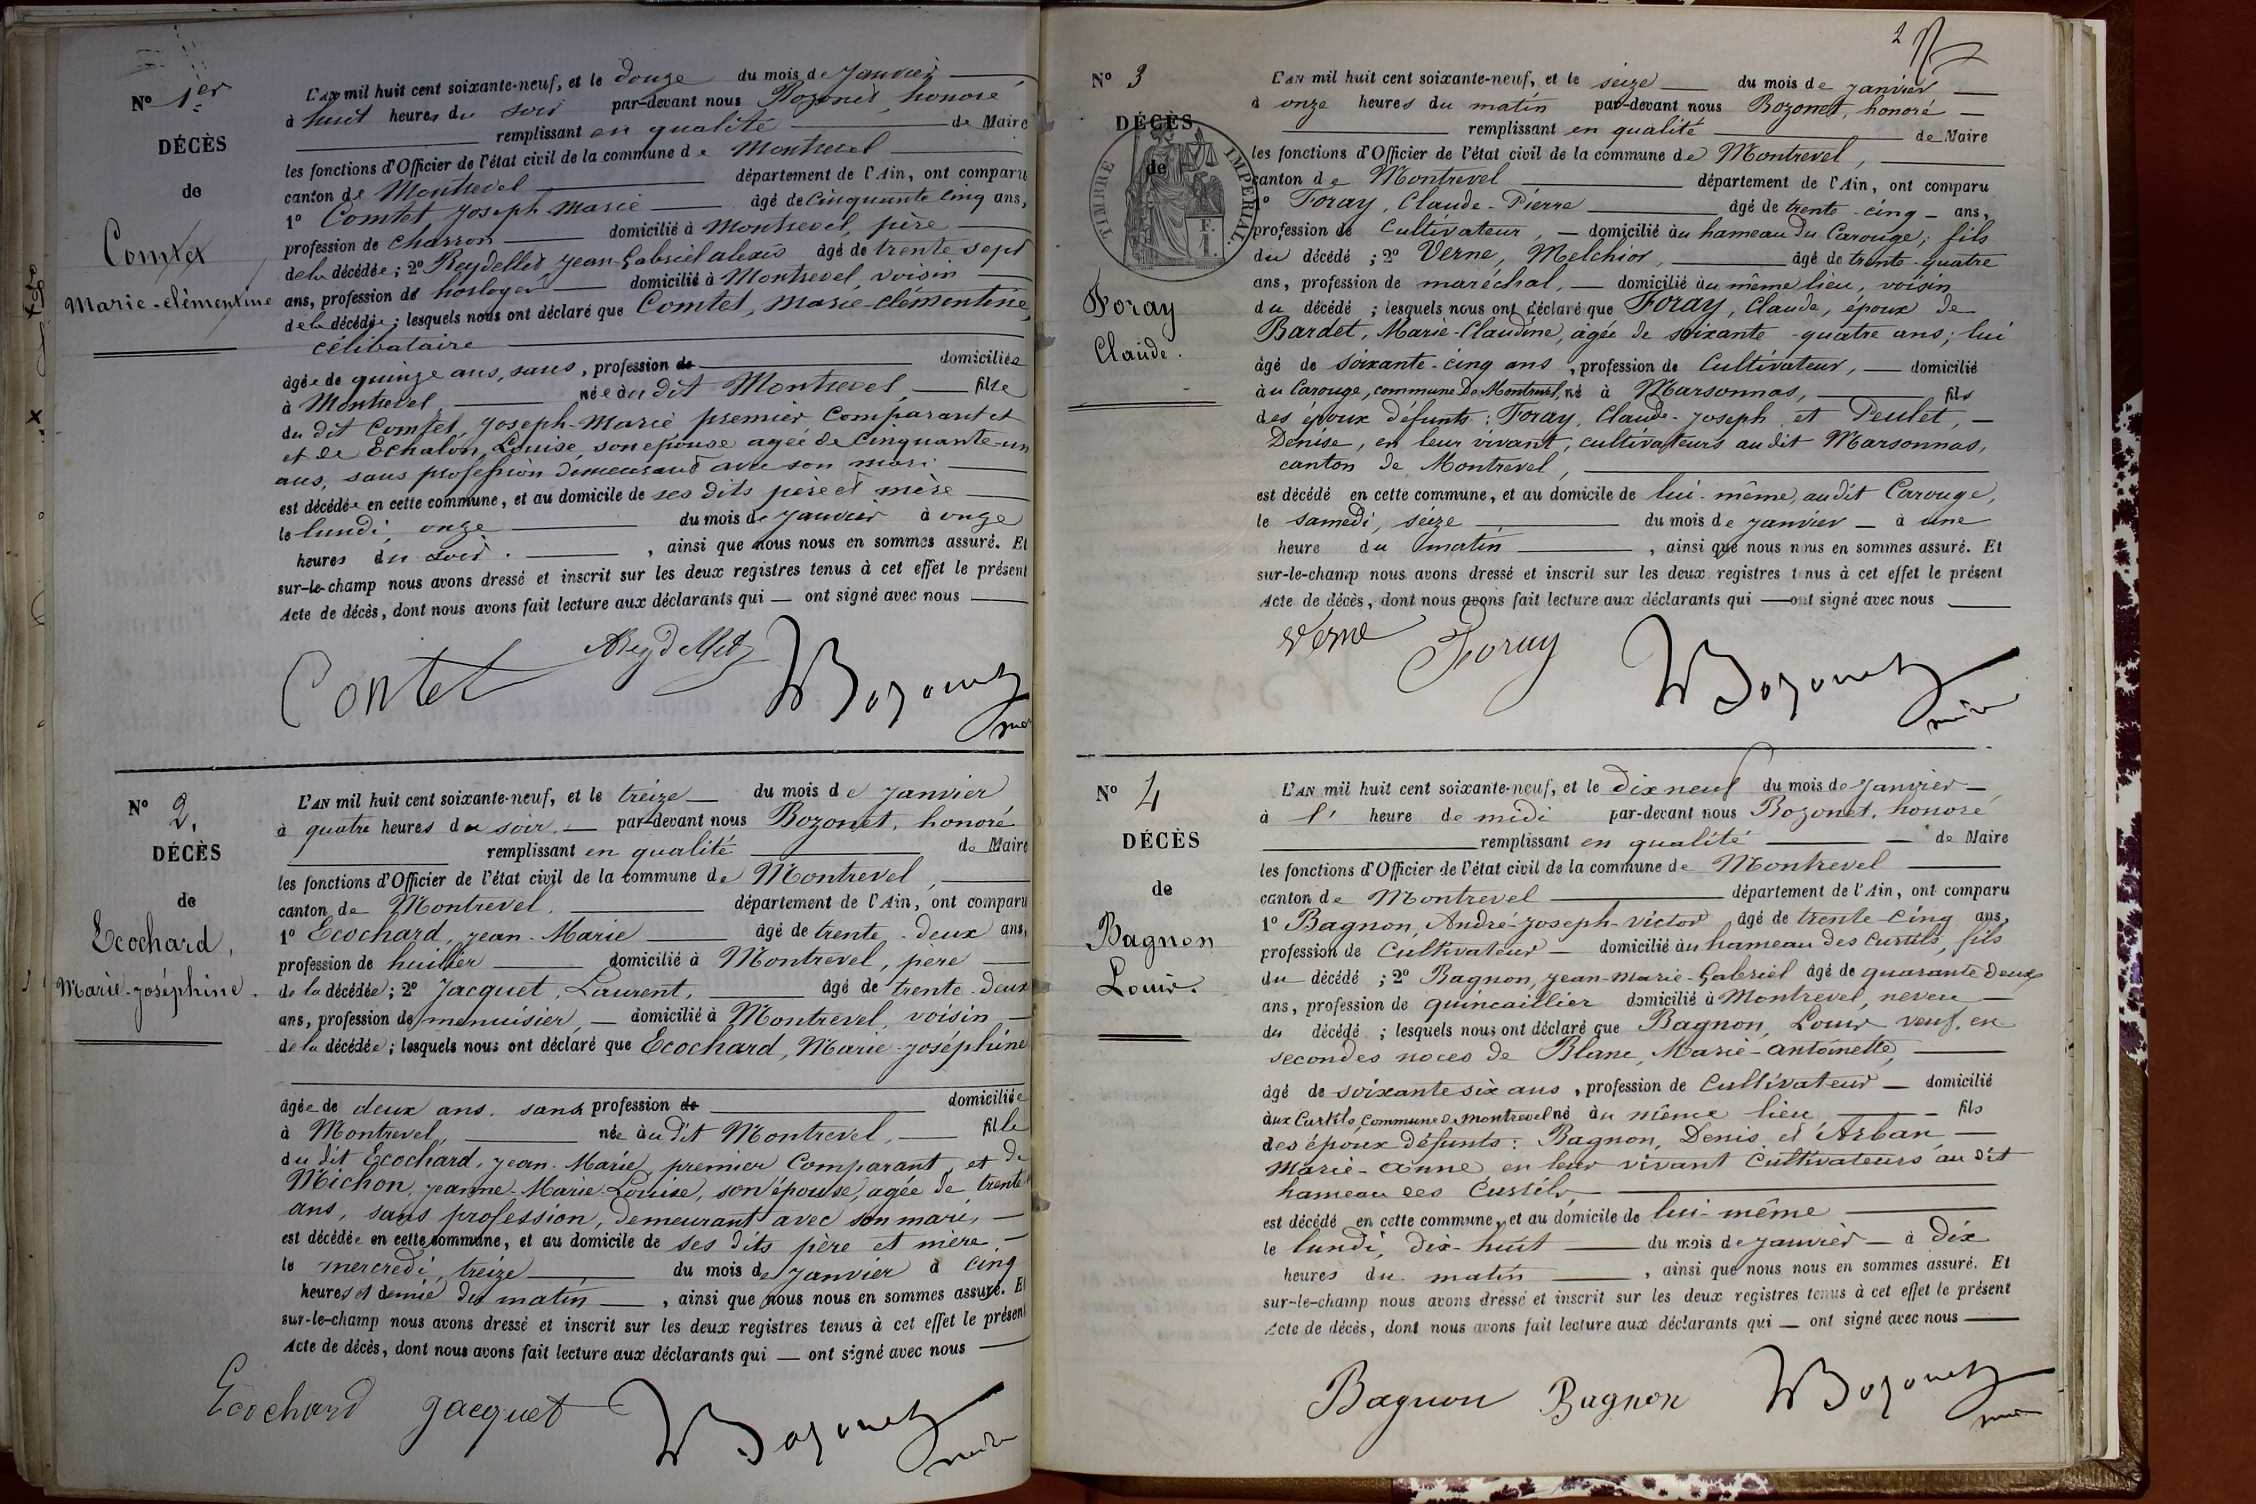 N° 1er
DÉCÈS
de
Comtet
Marie-clémentine
L'AN mil huit cent soixante-neuf, et le douze du mois de Janvier
à huit heures du soir par-devant nous Bozonet, honoré
remplissant en qualité de Maire
les fonctions d'Officier de l'état civil de la commune de Montrevel
canton de Montrevel département de l'Ain, ont comparu
1° Comtet, Joseph-Marie âgé de cinquante cinq ans,
profession de charron domicilié à Montrevel, père
de la décédée ; 2° Reydellet Jean-Gabriel alexis âgé de trente sept
ans, profession de horloger domicilié à Montrevel, voisin
de la décédée ; lesquels nous ont déclaré que Comtet, Marie-clémentine,
célibataire
âgée de quinze ans, sans, profession de domiciliée
à Montrevel, née au dit Montrevel, fille
du dit Comtet, Joseph-Marie premier comparant et
et de Echalon, Louise, son épouse agée de cinquante-un
ans, sans profession demeurant avec son mari
est décédée en cette commune, et au domicile de ses dits père et mère
le lundi, onze du mois de Janvier à onze
heures du soir. , ainsi que nous nous en sommes assuré. Et
sur-le-champ nous avons dressé et inscrit sur les deux registres tenus à cet effet le présent
Acte de décès, dont nous avons fait lecture aux déclarants qui — ont signé avec nous
Contet AReydellet Bozonet
N° 2.
DÉCÈS
de
Ecochard,
Marie-Joséphine.
L'AN mil huit cent soixante-neuf, et le treize du mois de Janvier
à quatre heures du soir. par-devant nous Bozonet, honoré
remplissant en qualité de Maire
les fonctions d'Officier de l'état civil de la commune de Montrevel,
canton de Montrevel. département de l'Ain, ont comparu
1° Ecochard, Jean-Marie âgé de trente-deux ans,
profession de huilier domicilié à Montrevel, père
de la décédée ; 2° Jacquet, Laurent, âgé de trente-deux
ans, profession de menuisier, domicilié à Montrevel, voisin
de la décédée ; lesquels nous ont déclaré que Ecochard, Marie-Joséphine
âgée de deux ans. sans profession de domiciliée
à Montrevel, née au dit Montrevel, fille
du dit Ecochard, Jean-Marie, premier comparant, et de
Michon, Jeanne-Marie-Louise, son épouse, agée de trente
ans, sans profession, demeurant avec son mari,
est décédée en cette commune, et au domicile de ses dits père et mère
le mercredi, treize du mois de Janvier à cinq
heures et demie du matin , ainsi que nous nous en sommes assuré. Et
sur-le-champ nous avons dressé et inscrit sur les deux registres tenus à cet effet le présent
Acte de décès, dont nous avons fait lecture aux déclarants qui — ont signé avec nous
Ecochard Jacquet Bozonet
maire
2
N° 3
DÉCÈS
de
TIMBRE IMPÉRIAL.
Foray
Claude.
L'AN mil huit cent soixante-neuf, et le seize du mois de Janvier
à onze heures du matin par-devant nous Bozonet, honoré
remplissant en qualité de Maire
les fonctions d'Officier de l'état civil de la commune de Montrevel,
canton de Montrevel département de l'Ain, ont comparu
1° Foray, Claude-Pierre âgé de trente-cinq ans,
profession de Cultivateur, domicilié au hameau du Carouge, fils
du décédé ; 2° Verne, Melchior, âgé de trente-quatre
ans, profession de maréchal, domicilié au même lieu, voisin
du décédé ; lesquels nous ont déclaré que Foray, Claude, époux de
Bardet, Marie-Claudine, agée de soixante-quatre ans; lui
âgé de soixante-cinq ans, profession de Cultivateur, domicilié
à au Carouge, commune De Montrevel, né à Marsonnas, fils
des époux défunts : Foray, Claude-Joseph, et Peulet,
Denise, en leur vivant, cultivateurs au dit Marsonnas,
canton de Montrevel,
est décédé en cette commune, et au domicile de lui-même, audit Carouge,
le samedi, seize du mois de Janvier à une
heure du matin , ainsi que nous nous en sommes assuré. Et
sur-le-champ nous avons dressé et inscrit sur les deux registres tenus à cet effet le présent
Acte de décès, dont nous avons fait lecture aux déclarants qui — ont signé avec nous
Verne Foray Bozonet
maire
N° 4
DÉCÈS
de
Bagnon
Louis.
L'AN mil huit cent soixante-neuf, et le dix neuf du mois de Janvier
à l' heure de midi par-devant nous Bozonet, honoré
remplissant en qualité de Maire
les fonctions d'Officier de l'état civil de la commune de Montrevel
canton de Montrevel département de l'Ain, ont comparu
1° Bagnon, André-Joseph-Victor âgé de trente-cinq ans,
profession de Cultivateur domicilié au hameau des Curtils, fils
du décédé ; 2° Bagnon, Jean-Marie-Gabriel âgé de quarante deux
ans, profession de quincaillier domicilié à Montrevel, neveu
du décédé ; lesquels nous ont déclaré que Bagnon, Louis veuf, en
secondes noces de Blanc, Marie-antoinette,
âgé de soixante six ans, profession de Cultivateur domicilié
aux Curtils, Commune de Montrevel né au même lieu fils
des époux défunts : Bagnon, Denis et Arban
Marie-anne en leur vivant Cultivateurs au dit
hameau des Curtils,
est décédé en cette commune, et au domicile de lui-même
le lundi, dix-huit du mois de Janvier à dix
heures du matin , ainsi que nous nous en sommes assuré. Et
sur-le-champ nous avons dressé et inscrit sur les deux registres tenus à cet effet le présent
Acte de décès, dont nous avons fait lecture aux déclarants qui — ont signé avec nous
Bagnon Bagnon Bozonet